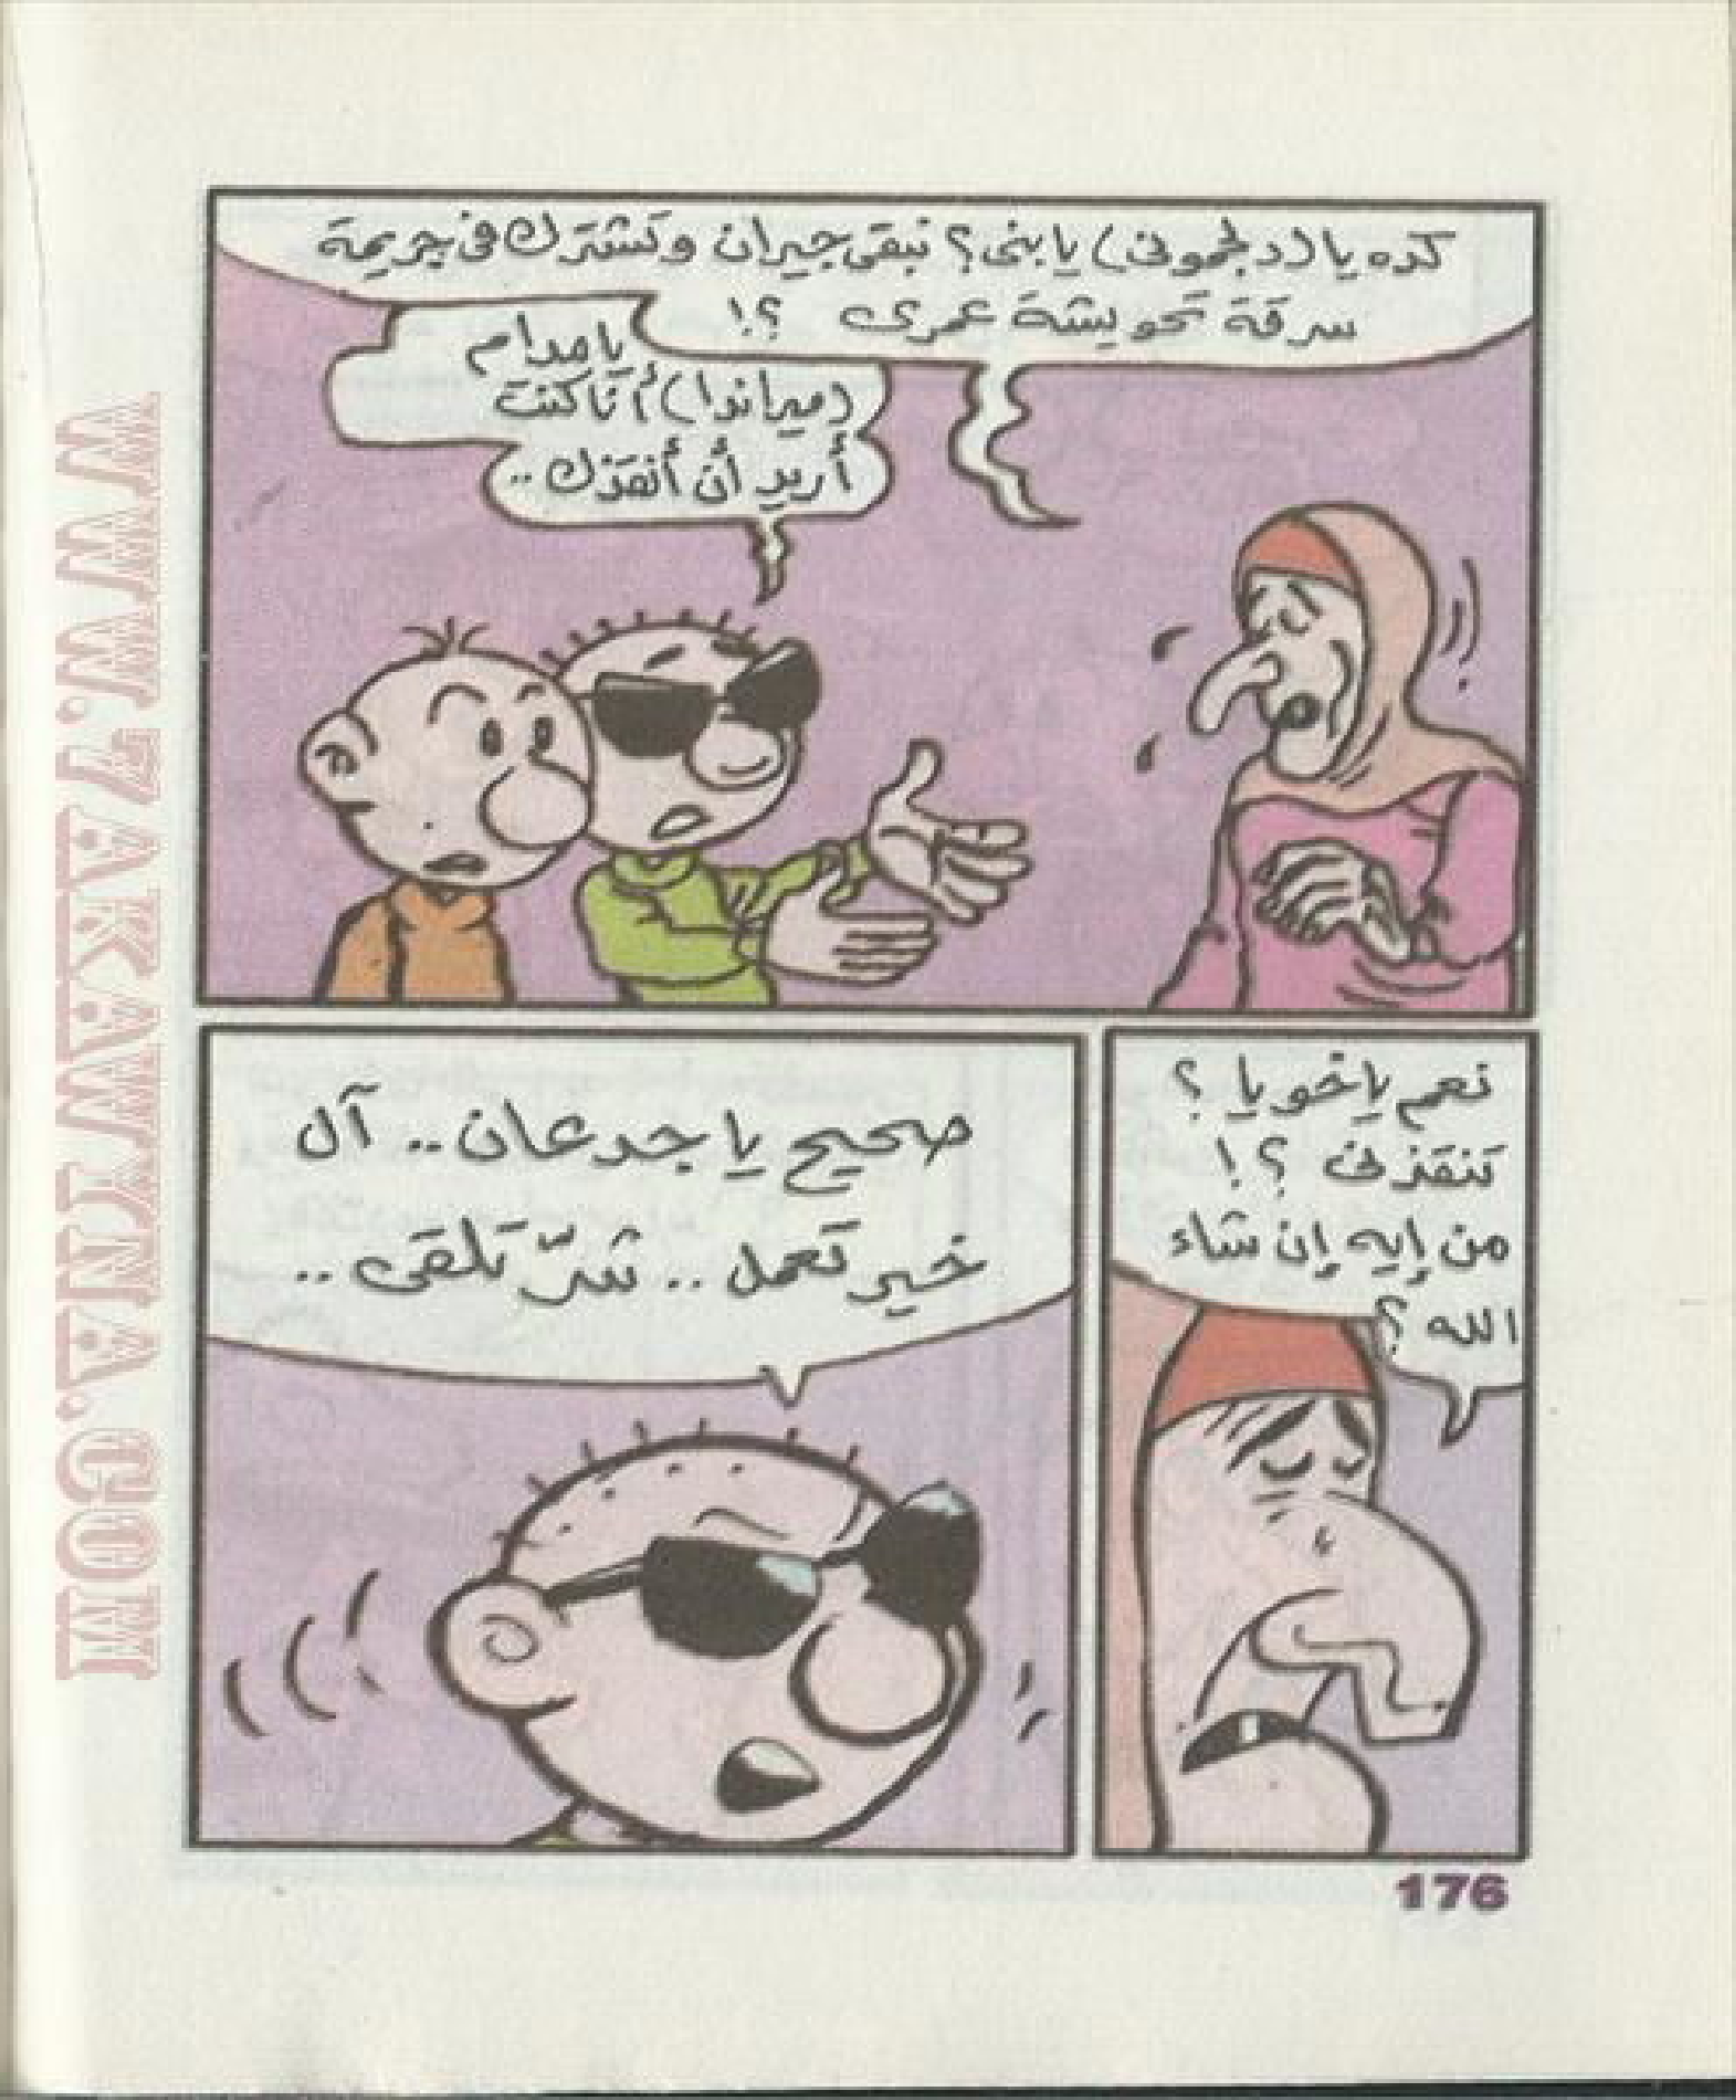 كده يا (دلجمونى) يا بنى؟ نبقى جيران وتشترك فى جريمة
سرقة تحويشة عمرى ؟!
يا مدام
(ميماندا) أنا كنت
أريد أن أنقذك ..
نعم ياخويا ؟
تنقذنى ؟!
من إيه إن شاء
الله ؟
صحيح يا جدعان .. آل
خير تعمل .. شرّ تلقى ..
176
WWW.7AKAWTNA.COM